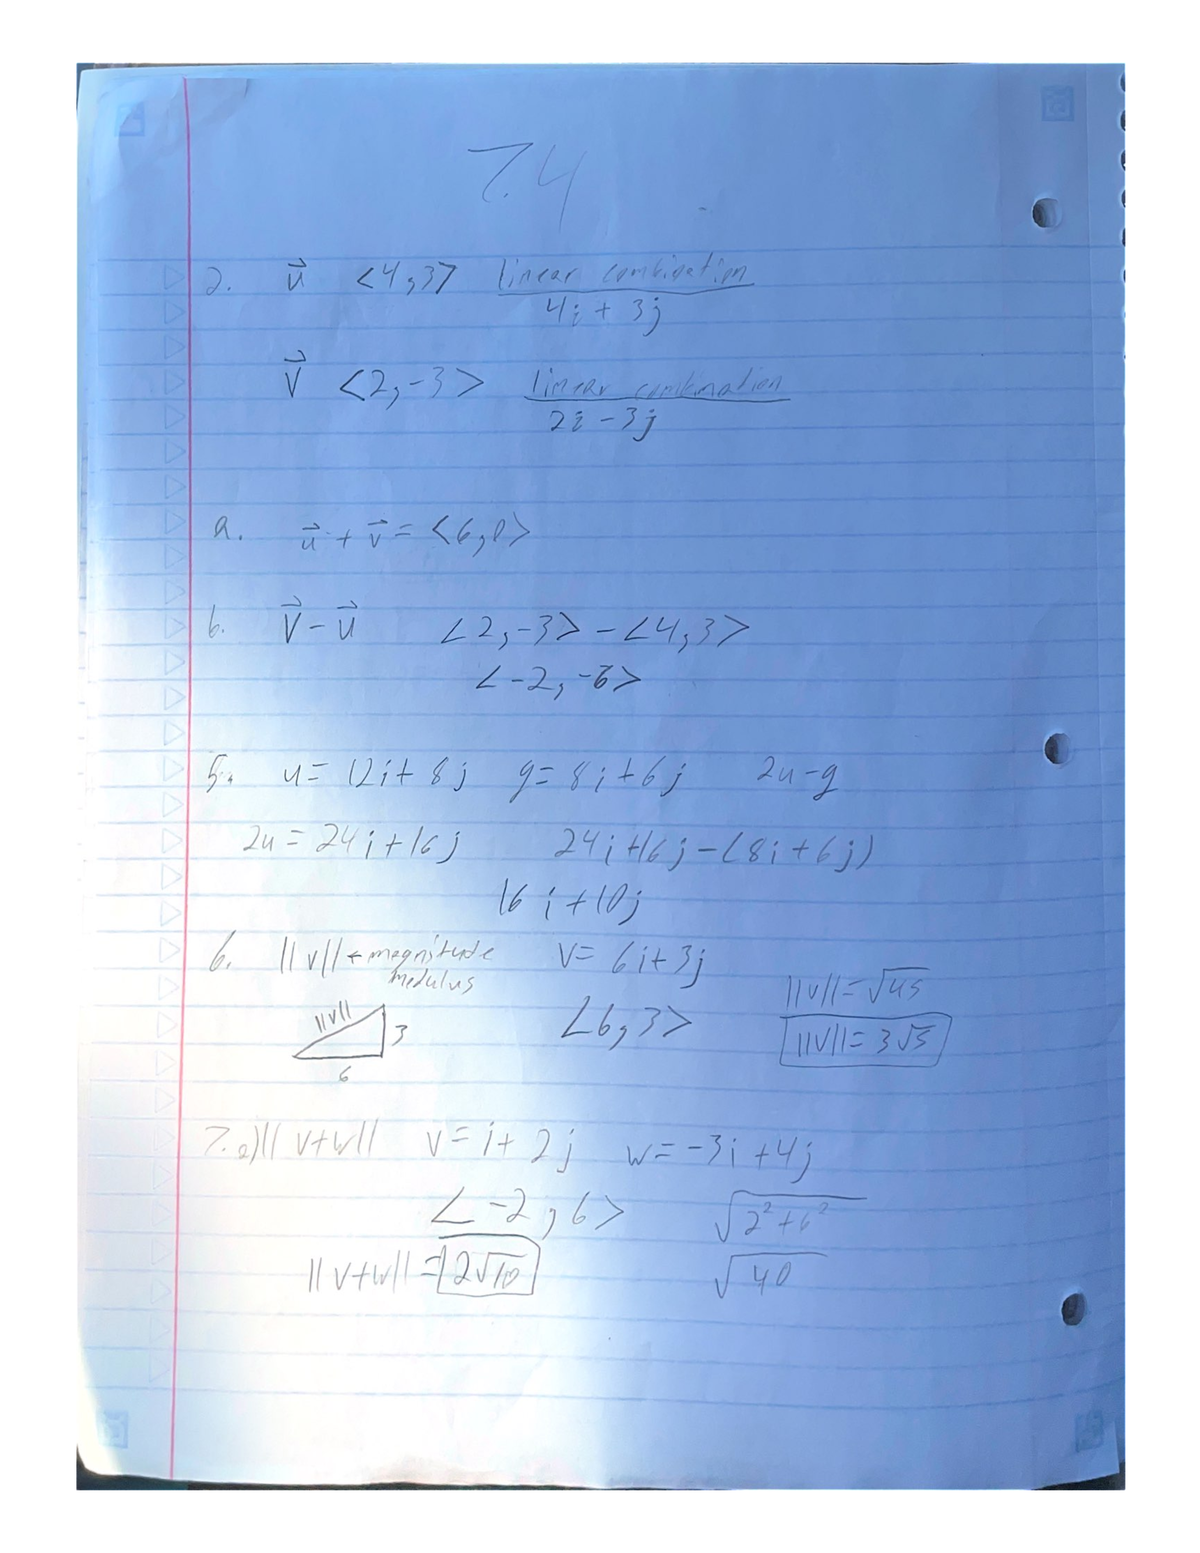 7.4
2. u⃗ <4,3> linear combination
4i + 3j
v⃗ <2,-3> linear combination
2i - 3j
a. u⃗ + v⃗ = <6,0>
b. v⃗ - u⃗ <2,-3> - <4,3>
<-2,-6>
5. u = 12i + 8j g = 8i + 6j 2u-g
2u = 24i + 16j 24i + 16j - (8i + 6j)
16i + 10j
6. ||v|| ← magnitude v = 6i + 3j
medulus
||v|| = √45
||v|| 3 <6,3> ||v|| = 3√5
6
7. a) ||v+w|| v = i + 2j w = -3i + 4j
<-2,6> √2²+6²
||v+w|| = 2√10 √40